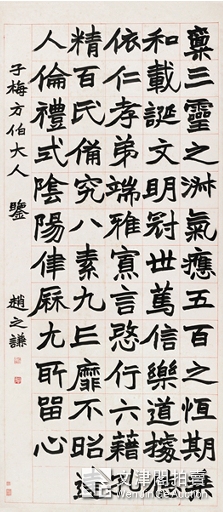 稟三靈之淑氣應五百之恆期
和載誕文明冠世篤信樂道據
依仁孝弟端雅寡言愍行六藉
精百氏備究八素九丘靡不昭達
人倫禮式陰陽律厤尤所留心
子梅方伯大人 鑒 趙之謙
文津閣拍賣
WenJinGe Auction